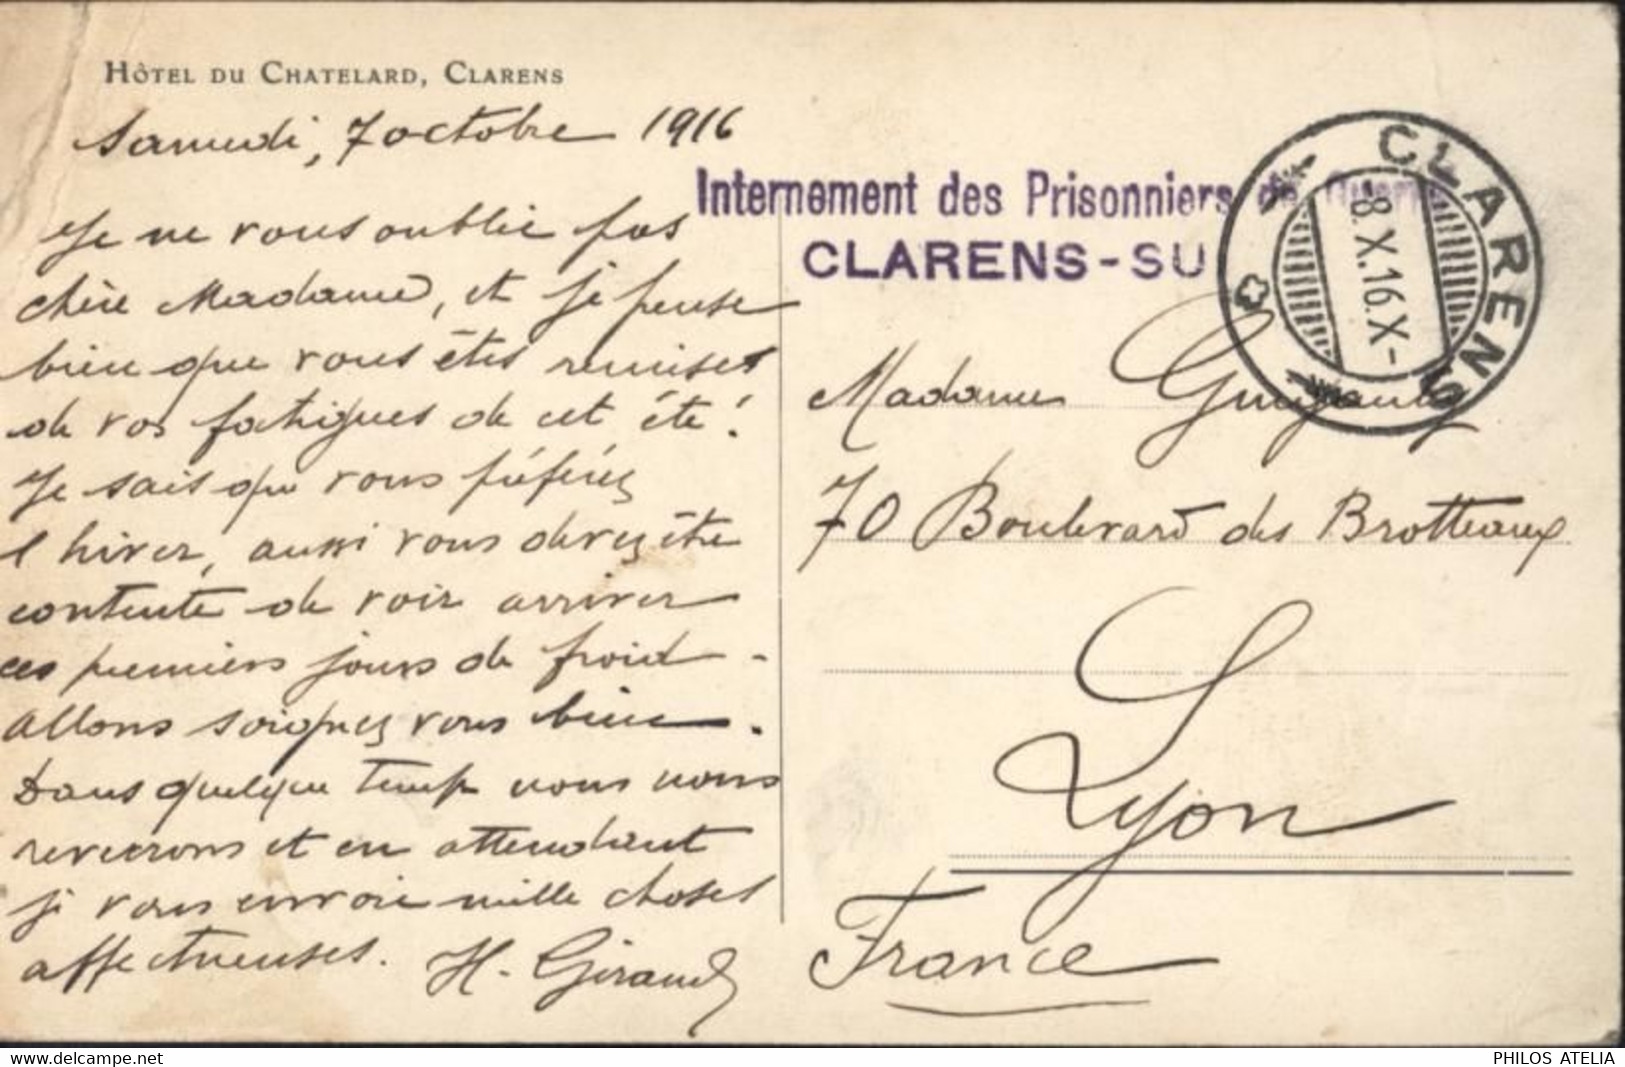 HÔTEL DU CHATELARD, CLARENS
Samedi, 7 octobre 1916
Je ne vous oublie pas
chère Madame, et je pense
bien que vous êtes remises
de vos fatigues de cet été !
Je sais que vous préférez
l hiver, aussi vous devez être
contente de voir arriver
ces premiers jours de froid -
allons soignez vous bien.
Dans quelque temps nous nous
reverrons et en attendant
je vous envoie mille choses
affectueuses. H. Giraud
Internement des Prisonniers de Guerre
CLARENS-SU
CLARENS
8.X.16.X-
Madame
70 Boulevard des Brotteaux
Lyon
France
delcampe.net
PHILOS ATELIA